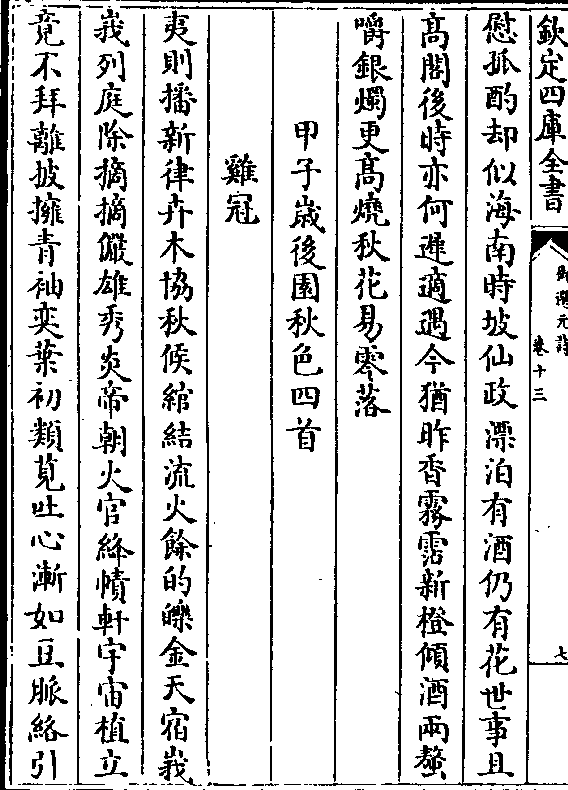 欽定四庫全書
御選元詩
卷十三
七
慰孤酌却似海南時坡仙政漂泊有酒仍有花世事且
髙閣後時亦何遲適遇今猶昨香霧霑新橙傾酒兩螯
嚼銀燭更髙燒秋花易零落
甲子嵗後園秋色四首
雞冠
夷則播新律卉木協秋候綰結流火餘的皪金天宿峩
峩列庭除摘摘儼雄秀炎帝朝火官絳幘軒宇宙植立
竟不拜離披擁青袖奕葉初類莧吐心漸如豆脈絡引